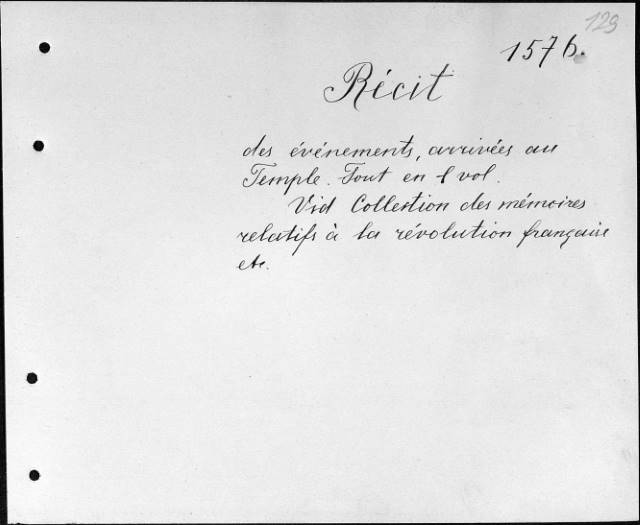 129
1576.
Récit
des événements, arrivées au
Temple. Tout en 1 vol.
Vid Collection des mémoires
relatifs à la révolution française
etc.